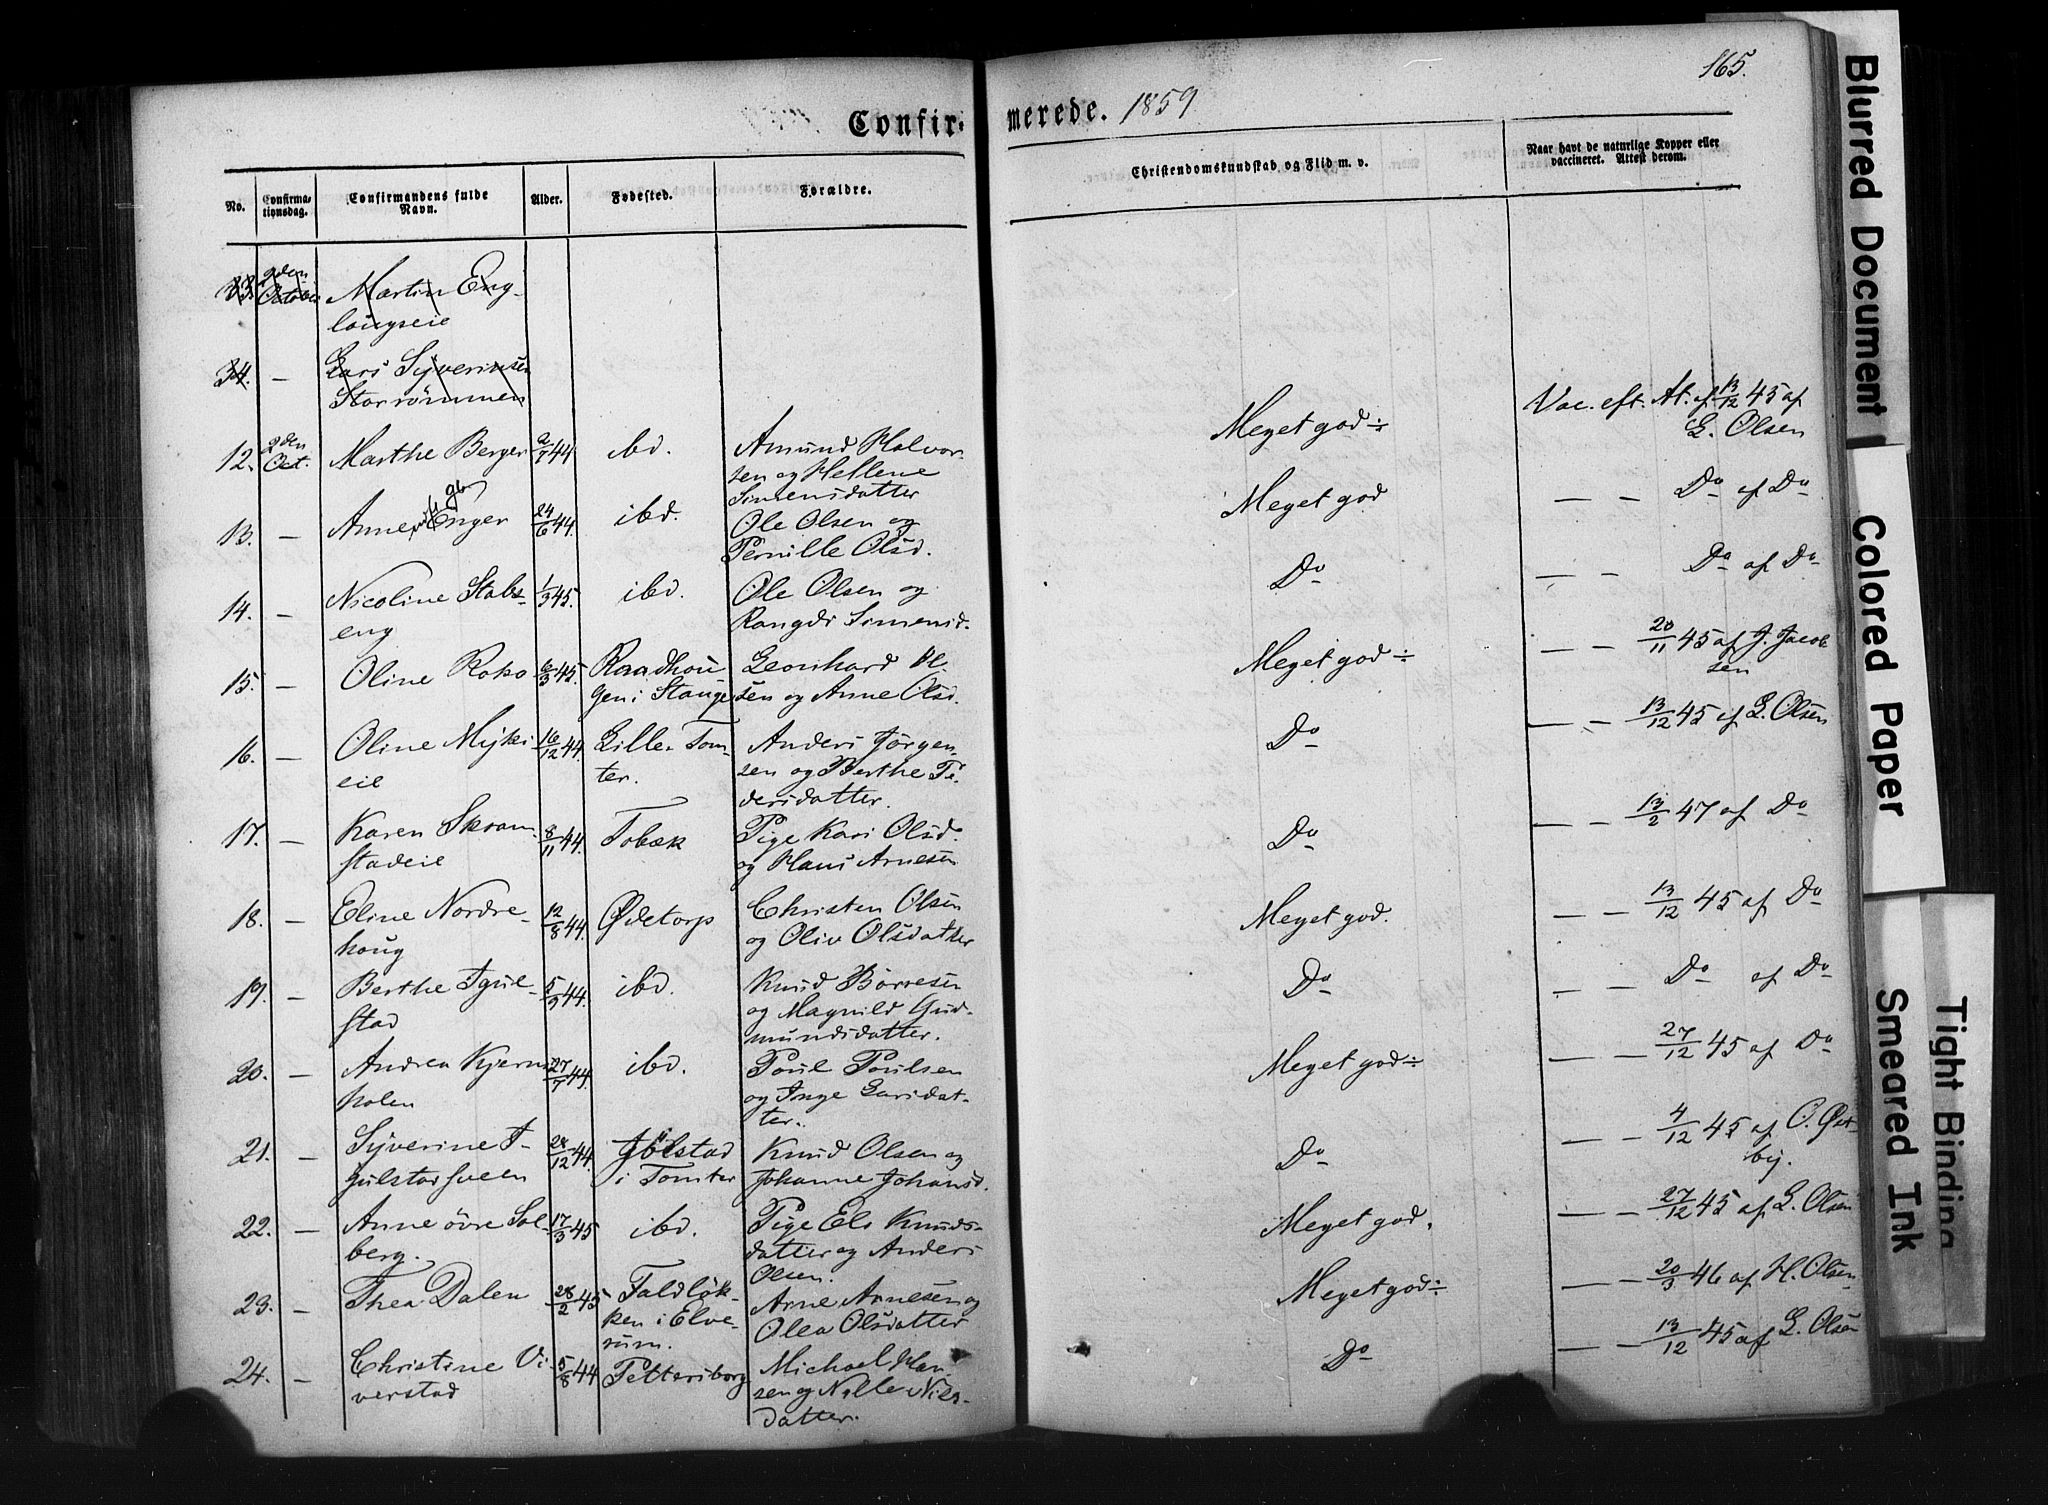 165.
Confir- merede. 1859
No.
Confirma-
tionsdag.
Confirmandens fulde
Navn.
Alder.
Fødested.
Forældre.
Christendomskundskab og Flid m. v.
Naar havt de naturlige Kopper eller
vaccineret. Attest derom.
33. 2den October Martin Eng-
laugseie
34. — Lars Syverinsen
Storrømmen
12. 2den Oct. Marthe Berger 2/7 44 ibd. Amund Halvor-
sen og Hellene
Simensdatter
Meget god ÷ Vac. eft. At. af 13/12 45 af
L. Olsen
13. — Anne Enger 24/6 44. ibd. Ole Olsen og
Pernille Olsd.
Meget god — — Do af Do
14. — Nicoline Stabs- 1/3 45. ibd. Ole Olsen og
eng Rangdi Simensd.
Do — — Do af Do
15. — Oline Roko 6/3 45. Raadhou- Leonhard Ol-
gen i Stange sen og Anne Olsd.
Meget god ÷ — — 20/11 45 af J. Jacob-
sen
16. — Oline Myki- 16/12 44. Lille Tom- Anders Jørgen-
eie ter. sen og Berthe Pe-
dersdatter.
Do — — 13/12 45 af L. Olsen
17. — Karen Skram- 8/11 44. Tobæk Pige Kari Olsd.
stadeie og Hans Arnesen
Do — — 13/2 47 af Do
18. — Eline Nordre- 12/8 44. Ødetorp Christen Olsen
houg og Oliv Olsdatter
Meget god. — — 13/12 45 af Do
19. — Berthe Igul- 5/9 44. ibd. Knud Børresen
stad og Magnild Gud-
mundsdatter.
Do — — Do af Do
20. — Andrea Kjerns- 27/7 44. ibd. Poul Poulsen
holen og Inge Larsdat-
ter.
Meget god ÷ — — 27/12 45 af Do
21. — Syverine I- 28/12 44. Knud Olsen og
gulstadsveen i Tomter Johanne Johansd.
Do — — 4/12 45 af O. Øst-
by.
22. — Anne øvre Sol- 17/3 45 ibd. Pige Els Knuds-
berg. datter og Anders
Olsen.
Meget god. — — 27/12 45 af L. Olsen
23. — Thea Dalen 28/2 45 Faldløk- Arne Arnesen og
ken i Elve- Olea Olsdatter
rum.
Meget god ÷ — — 20/3 46 af H. Olsen
24. — Christine Vi- 5/8 44 Pettersborg Michael Han-
verstad sen og Nille Nils-
datter.
Do — — 13/12 45 af L. Olsen
Blurred Document
Colored Paper
Tight Binding
Smeared Ink